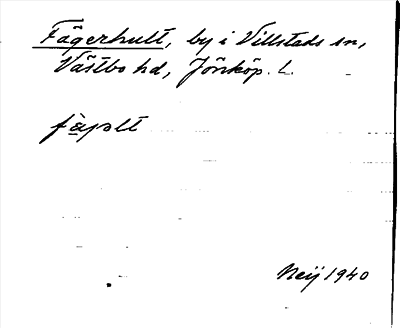 Fägerhult, by i Villstads sn,
Västbo hd, Jönköp. L.
fäplt
Neij 1940